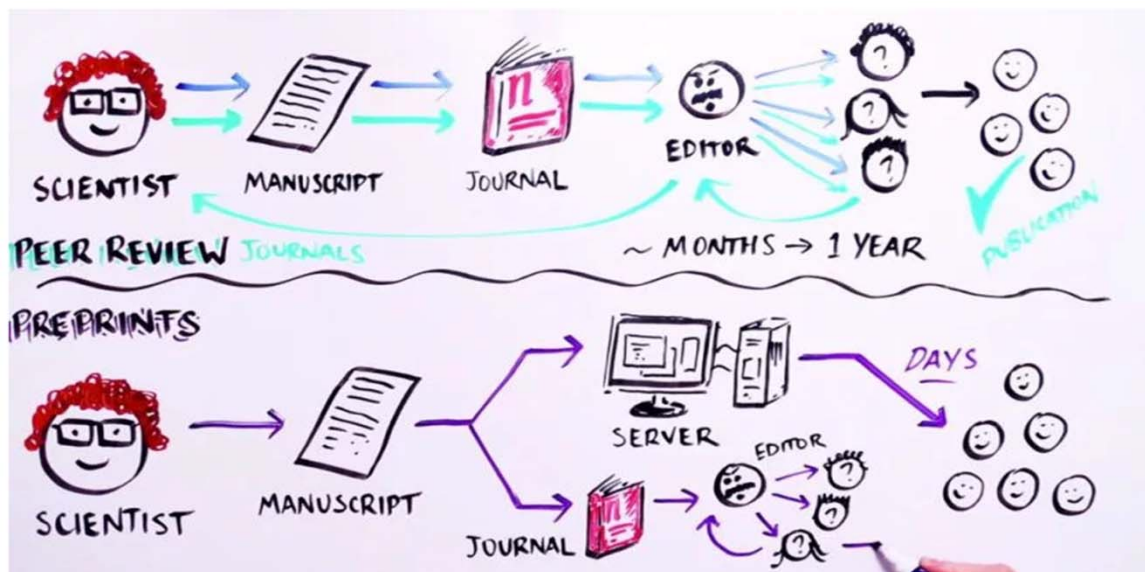 SCIENTIST
MANUSCRIPT
n
JOURNAL
EDITOR
?
?
?
PUBLICATION
PEER REVIEW JOURNALS
~ MONTHS → 1 YEAR
PREPRINTS
SCIENTIST
MANUSCRIPT
SERVER
DAYS
JOURNAL
EDITOR
?
?
?